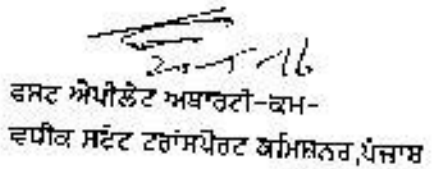 20-5-16
ਫਸਟ ਐਪੀਲੇਟ ਅਥਾਰਟੀ-ਕਮ-
ਵਧੀਕ ਸਟੇਟ ਟਰਾਂਸਪੋਰਟ ਕਮਿਸ਼ਨਰ,ਪੰਜਾਬ